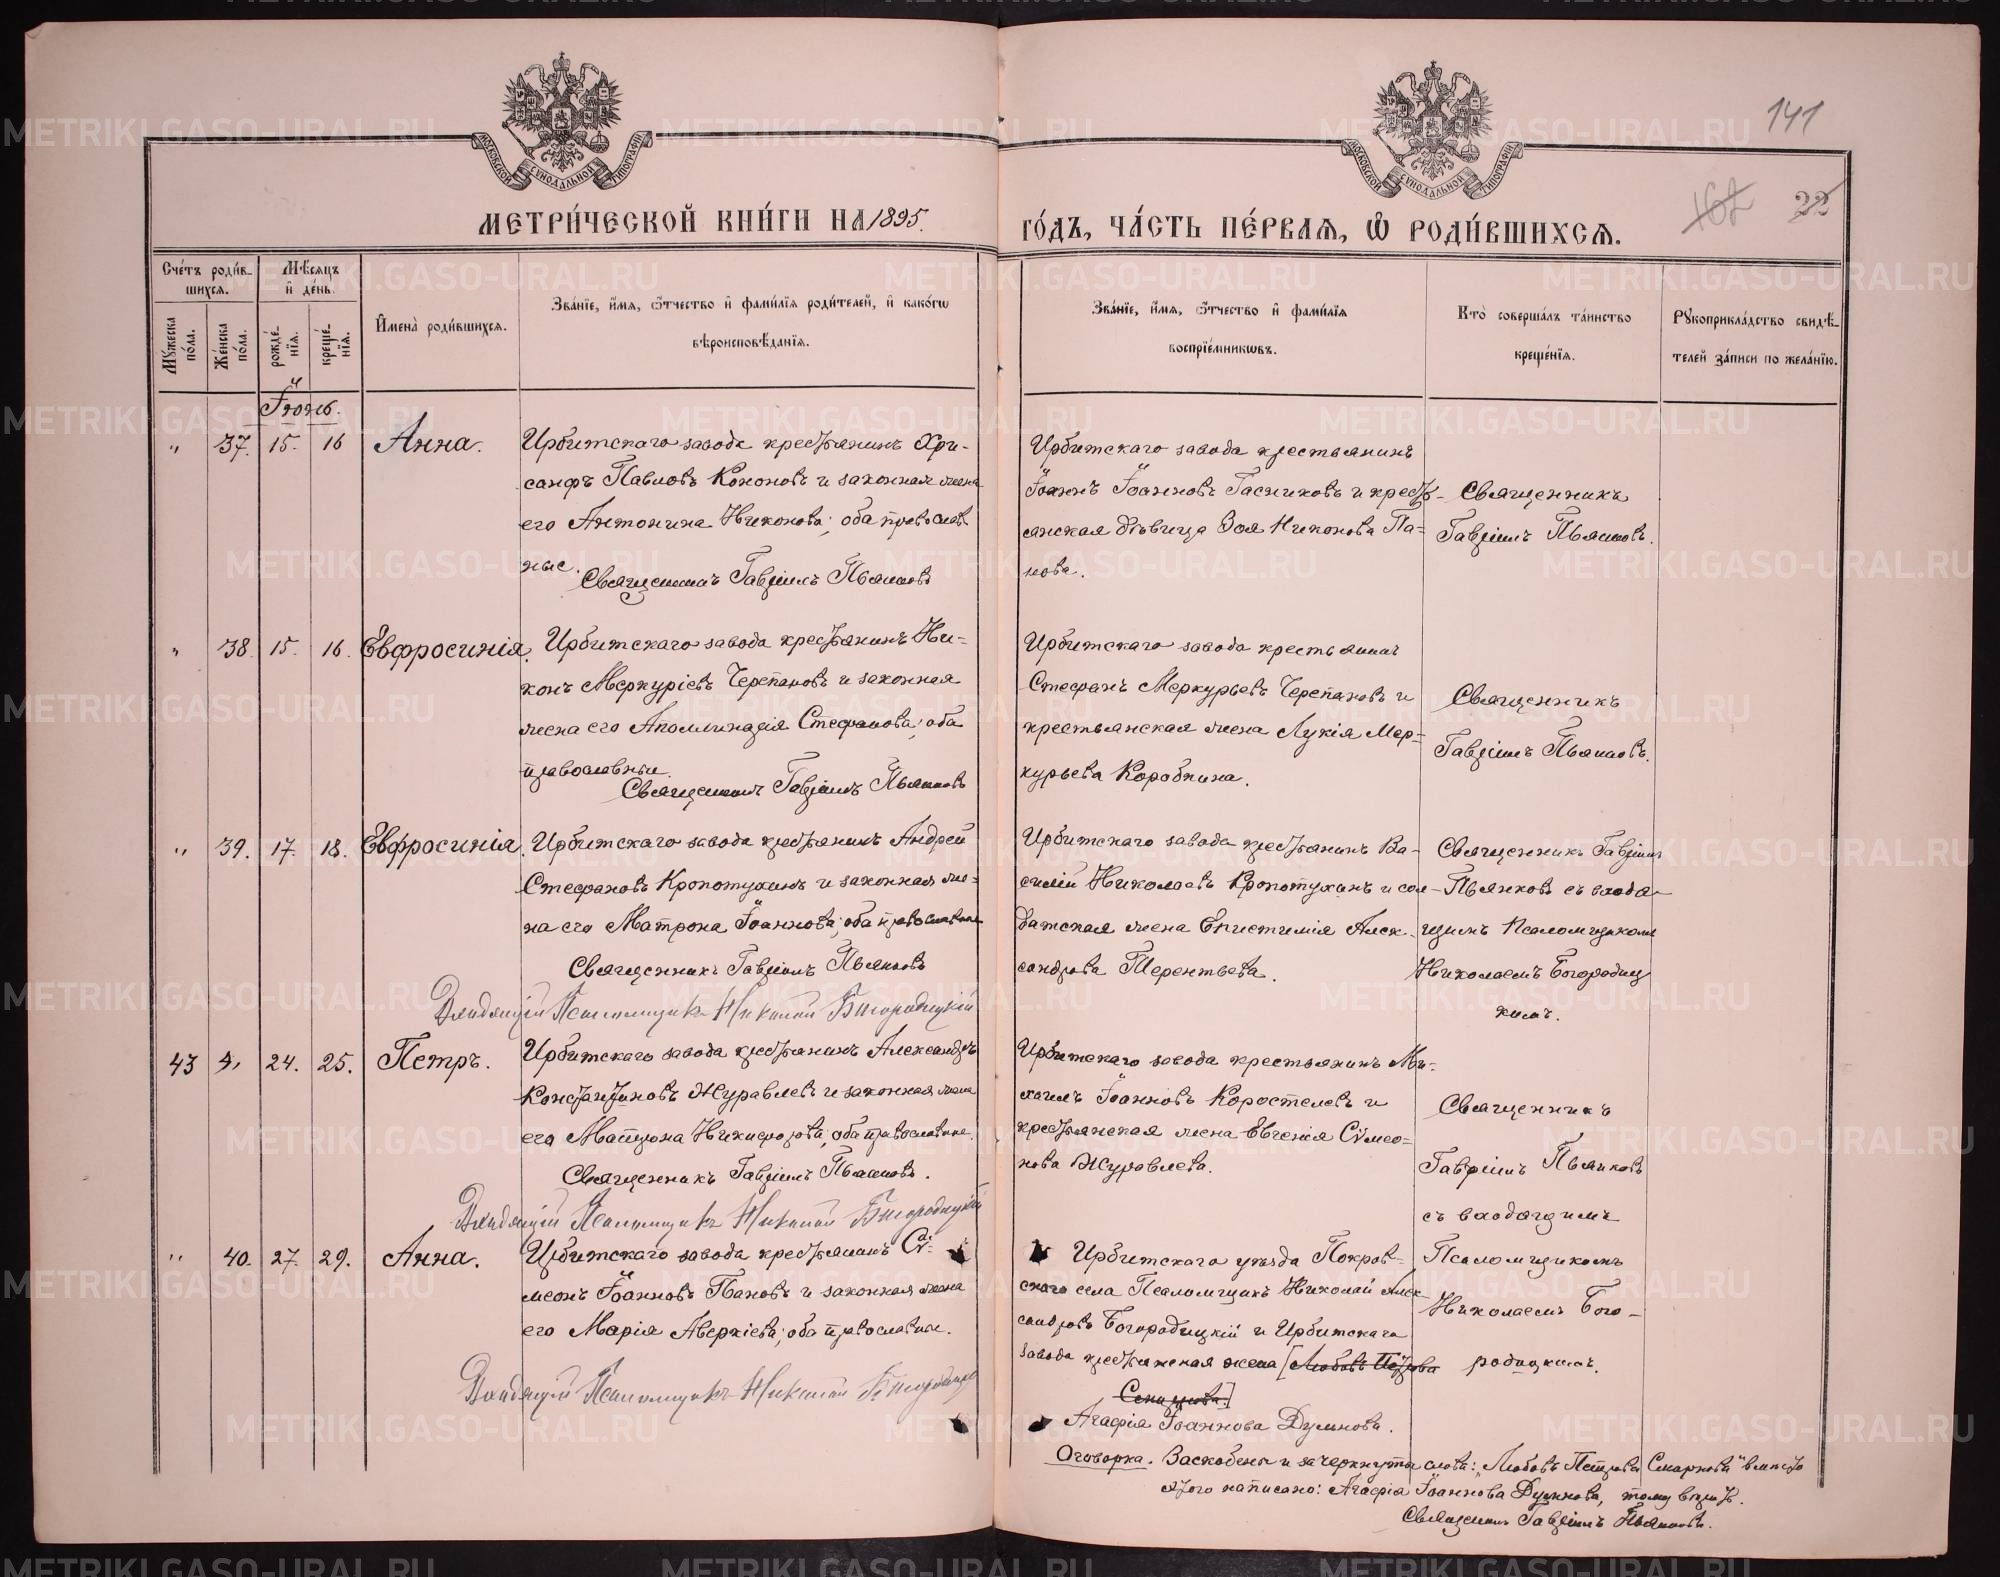 МОСКОВСКОЙ СУНОДАЛЬНОЙ ТИПОГРАФІИ
МОСКОВСКОЙ СУНОДАЛЬНОЙ ТИПОГРАФІИ
141
22
МЕТРИ́ЧЕСКОЙ КНИ́ГИ НА 1895.
ГО́ДЪ, ЧА́СТЬ ПЕ́РВАѦ, Ѡ РОДИ́ВШИХСѦ.
Сче́тъ роди́в-
шихсѧ.
Мѣ́сѧцъ
и҆ де́нь.
Мꙋ́жеска по́ла.
Же́нска по́ла.
рожде́-нїѧ.
креще́-нїѧ.
И҆мена̀ роди́вшихсѧ.
Зва́нїе, и҆́мѧ, ѻ҆́тчество и҆ фами́лїѧ роди́телей, и҆ како́гѡ
вѣроисповѣ́данїѧ.
Зва́нїе, и҆́мѧ, ѻ҆́тчество и҆ фами́лїѧ
воспрїе́мникѡвъ.
Кто̀ соверша́лъ та́инство
креще́нїѧ.
Рꙋкоприкла́дство свидѣ́-
телей за́писи по жела́нїю.
Іюнь.
" 37. 15. 16 Анна.
Ирбитскаго завода крестьянинъ Хри-
санфъ Павловъ Кононовъ и законная жена
его Антонина Никонова; оба православ
ные.
Священникъ Гавріилъ Пьянковъ
Ирбитскаго завода крестьянинъ
Іоаннъ Іоанновъ Гасниковъ и кресть-
янская дѣвица Зоя Никонова Па-
нова.
Священникъ
Гавріилъ Пьянковъ.
" 38. 15. 16. Евфросинія.
Ирбитскаго завода крестьянинъ Ни-
конъ Меркуріевъ Черепановъ и законная
жена его Аполлинарія Стефанова; оба
православные.
Священникъ Гавріилъ Пьянковъ
Ирбитскаго завода крестьянинъ
Стефанъ Меркурьевъ Черепановъ и
крестьянская жена Лукія Мер-
курьева Коробкина.
Священникъ
Гавріилъ Пьянковъ.
" 39. 17. 18. Евфросинія.
Ирбитскаго завода крестьянинъ Андрей
Стефановъ Кропотухинъ и законная же-
на его Матрона Іоаннова; оба православные
Священникъ Гавріилъ Пьянковъ
Входящій Псаломщикъ Николай Богородицкій
Ирбитскаго завода крестьянинъ Ва-
силій Николаевъ Кропотухинъ и сол-
датская жена Епистимія Алек-
сандрова Терентьева.
Священникъ Гавріилъ
Пьянковъ съ входя-
щимъ Псаломщикомъ
Николаемъ Богородиц
кимъ.
43 " 24. 25. Петръ.
Ирбитскаго завода крестьянинъ Александръ
Константиновъ Журавлевъ и законная жена
его Матрона Никифорова; оба православные.
Священникъ Гавріилъ Пьянковъ.
Входящій Псаломщикъ Николай Богородицкій
Ирбитскаго завода крестьянинъ Ми-
хаилъ Іоанновъ Коростелевъ и
крестьянская жена Евгенія Сѵмео-
нова Журавлева.
Священникъ
Гавріилъ Пьянковъ
съ входящимъ
Псаломщикомъ
Николаемъ Бого-
родицкимъ.
" 40. 27. 29. Анна.
Ирбитскаго завода крестьянинъ Сѵ-
меонъ Іоанновъ Пановъ и законная жена
его Марія Аверкіева; оба православные.
Входящій Псаломщикъ Николай Богородицкій
Ирбитскаго уѣзда Покров-
скаго села Псаломщикъ Николай Алек
сандровъ Богородицкій и Ирбитскаго
завода крестьянская жена [Любовь Петрова
Агафія Іоаннова Думнова.
Оговорка. Заскоблены и зачеркнуты слова: „Любовь Петрова Смирнова" вмѣсто
этого написано: Агафія Іоаннова Думнова, тому вѣрить.
Священникъ Гавріилъ Пьянковъ.
METRIKI.GASO-URAL.RU